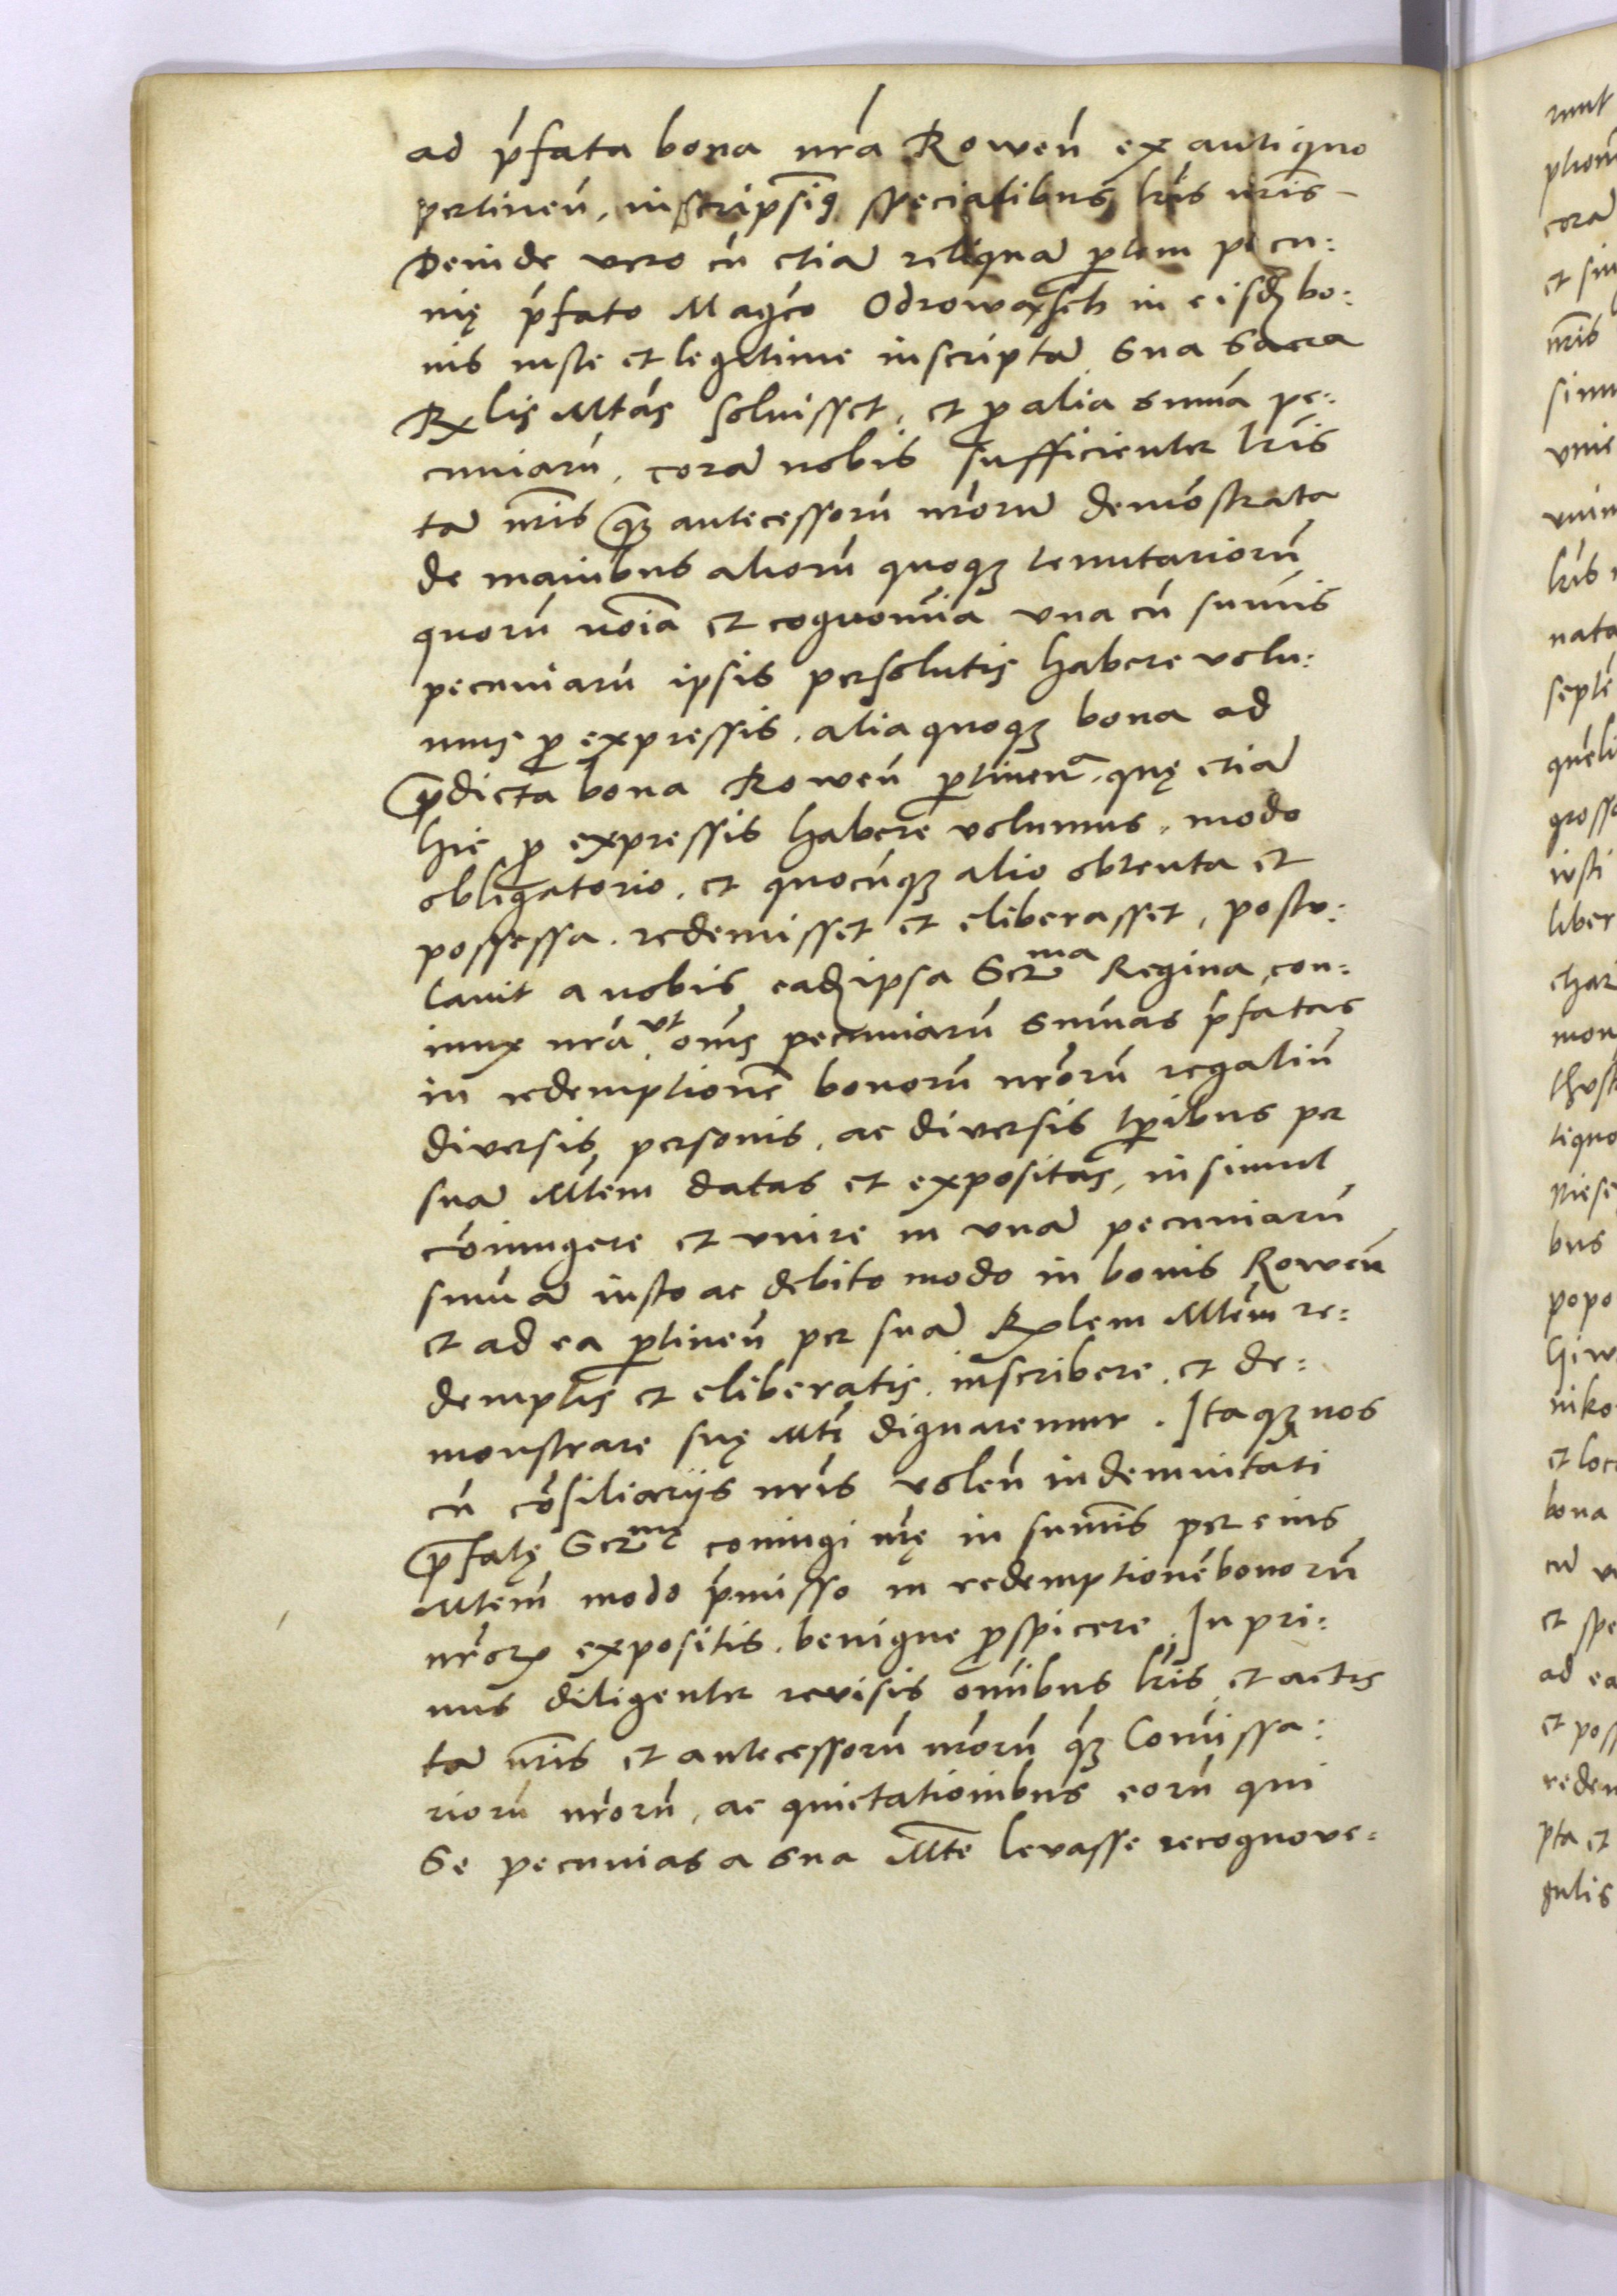 ad p̄fata bona nr̄a Rowen̄ ex antiquo
pertinen̄, inscripsim9 specialibus lr̄is nr̄is
Deinde vero cū etiā reliquā ꝑtem pecu:
nię p̄fato Mag͞co Odrowąsch in eisdȝ bo:
nis iuste et legitime inscriptā Sua Sacra
Rxlis Mtās soluisset, et ꝓ alia sum̄a pe:
cuniarū, corā nobis sufficienter lr̄is
tā nr̄is qȝ antecessorū nr̄orū demōstrata
de manibus aliorū quoqȝ tenutariorū
quorū noīa et cognomīa una cū sum̄is
pecuniarū ipsis persolutis habere volu:
mus ꝓ expressis, alia quoqȝ bona ad
p̄dicta bona Rowen̄ ꝑtinen̄, quę etiā
hic ꝓ expressis habere volumus, modo
obligatorio, et quocūqȝ alio obtenta et
possessa, redemisset et eliberasset, postu:
lauit a nobis eadȝ ipsa Ser͞ma Regina con:
iunx nr̄a, vt om̄s pecuniarū sum̄as p̄fatas
in redemptionē bonorū nr̄orū regaliū
diversis personis, ac diversis tꝑibus per
suā Mtem datas et expositas, in simul
cōiungere et unire in unā pecuniarū
sum̄ā iusto ac debito modo in bonis Rowen̄
et ad ea ꝑtinen̄ per suā Rxlem Mtēm re:
demptis et eliberatis, inscribere, et de:
monstrare suę Mtī dignaremur. Itaqȝ nos
cū cōsiliariis nr̄is volen̄ indemnitati
p̄fatę Ser͞mę coniugi nr̄ę in sum̄is per eius
Mtēm modo p̄misso in redemptionē bonorū
nr̄orū expositis, benigne ꝓspicere. In pri:
mis diligenter revisis om̄ibus lr̄is et actis
tā nr̄is et antecessorū nr̄orū qȝ Com̄issa:
riorū nr̄orū, ac quietationibus eorū qui
Se pecunias a Sua Mte levasse recognove: